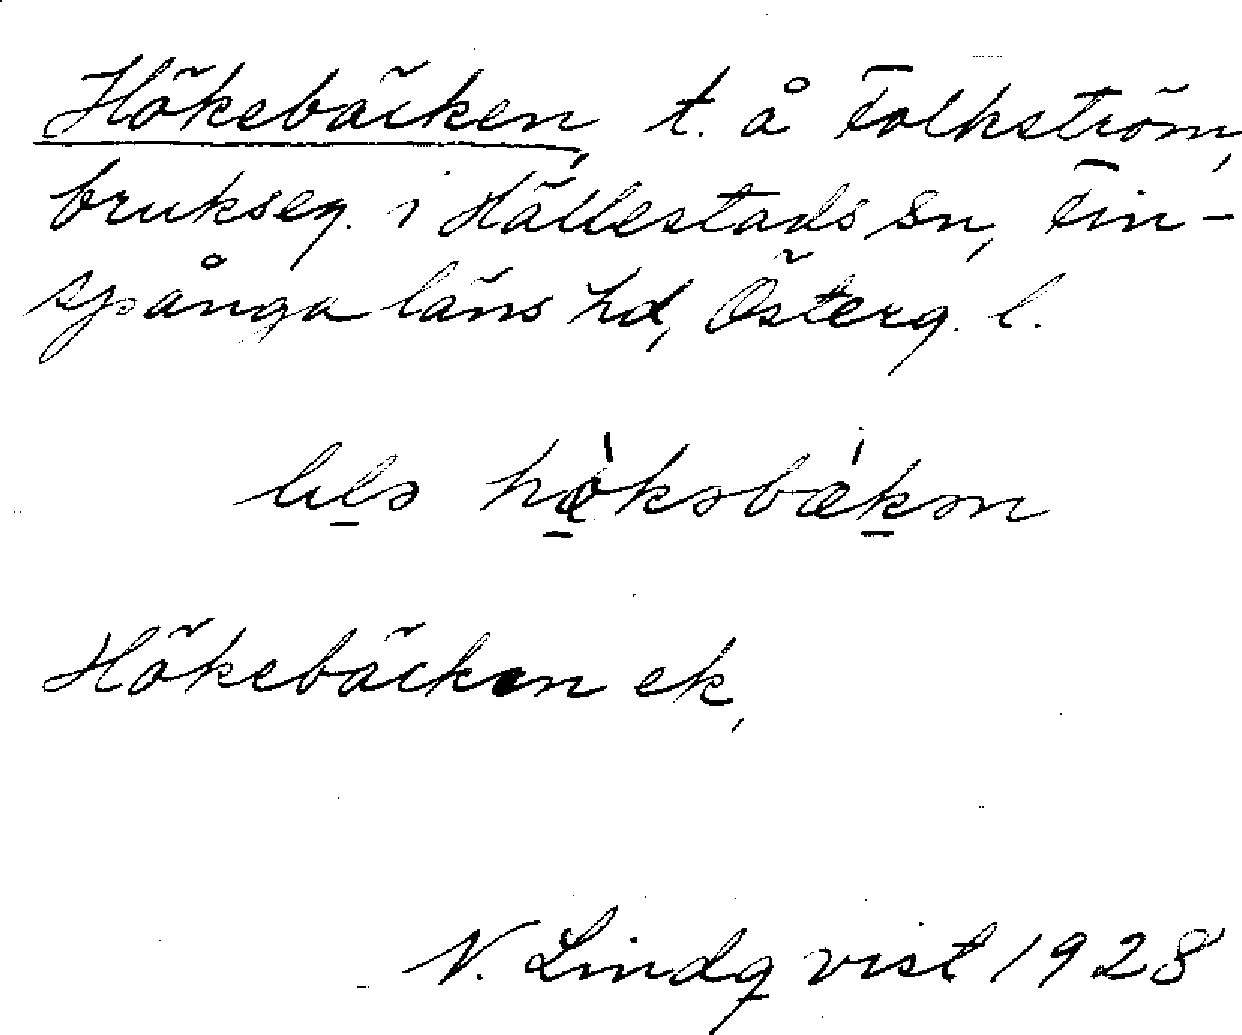 Hökebäcken, t. å Folkström,
brukseg. i Hällestads sn, Fin-
spånga läns hd, Österg. l.
Hökebäcken ek,
N. Lindqvist 1928